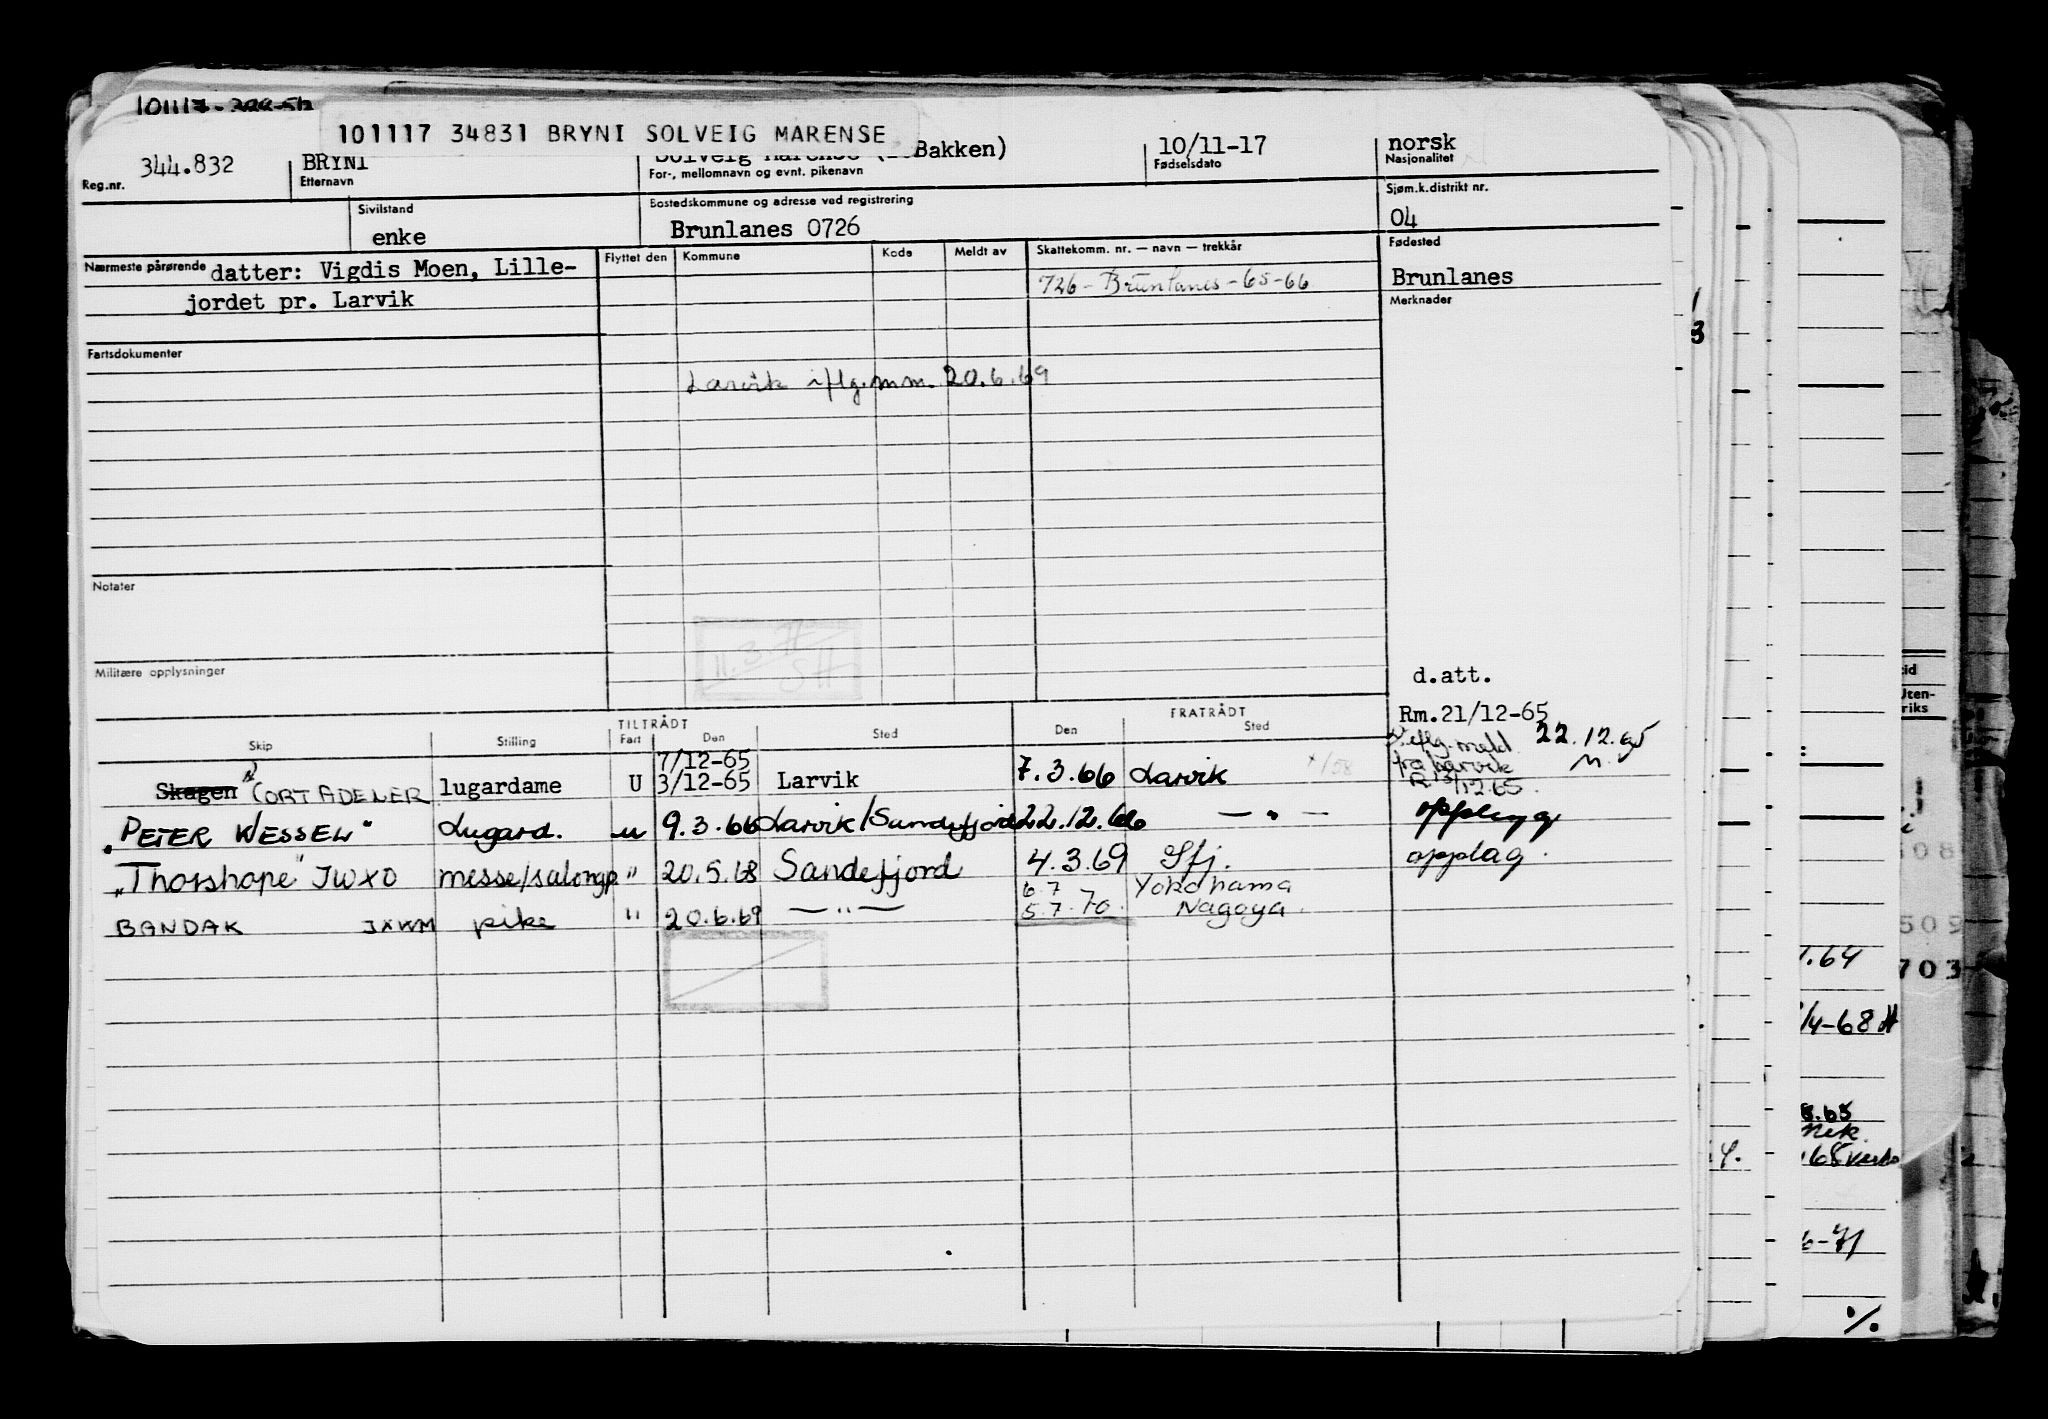 101117
101117 34831 BRYNI SOLVEIG MARENSE
344.832 BRYNI Bakken) 10/11-17 norsk
Reg.nr. Etternavn For-, mellomnavn og evnt. pikenavn Fødselsdato Nasjonalitet
Sivilstand Bostedskommune og adresse ved registrering Sjøm.k.distrikt nr.
enke Brunlanes 0726 04
Nærmeste pårørende datter: Vigdis Moen, Lille- Flyttet den Kommune Kode Meldt av Skattekomm. nr. — navn — trekkår Fødested
jordet pr. Larvik 726 - Brunlanes - 65-66 Brunlanes
Merknader
Fartsdokumenter
Larvik iflg. m m. 20.6.69
Notater
11.3.71
SH
Militære opplysninger
d.att.
TILTRÅDT FRATRÅDT Rm.21/12-65
Skip Stilling Fart Den Sted Den Sted
iflg. meld. 22.12.65
fra Larvik
7/12-65
Skagen CORT ADELER lugardame U 3/12-65 Larvik 7.3.66 Larvik
"PETER WESSEL" Lugard. u 9.3.66 Larvik/Sandefjord 22.12.66 — " — opplegg
"Thorshope" JWXO messe/salongp. " 20.5.68 Sandefjord 4.3.69 Sfj. opplag.
6.7 Yokohama
BANDAK JXWM pike " 20.6.69 — " — 5.7.70. Nagoya.